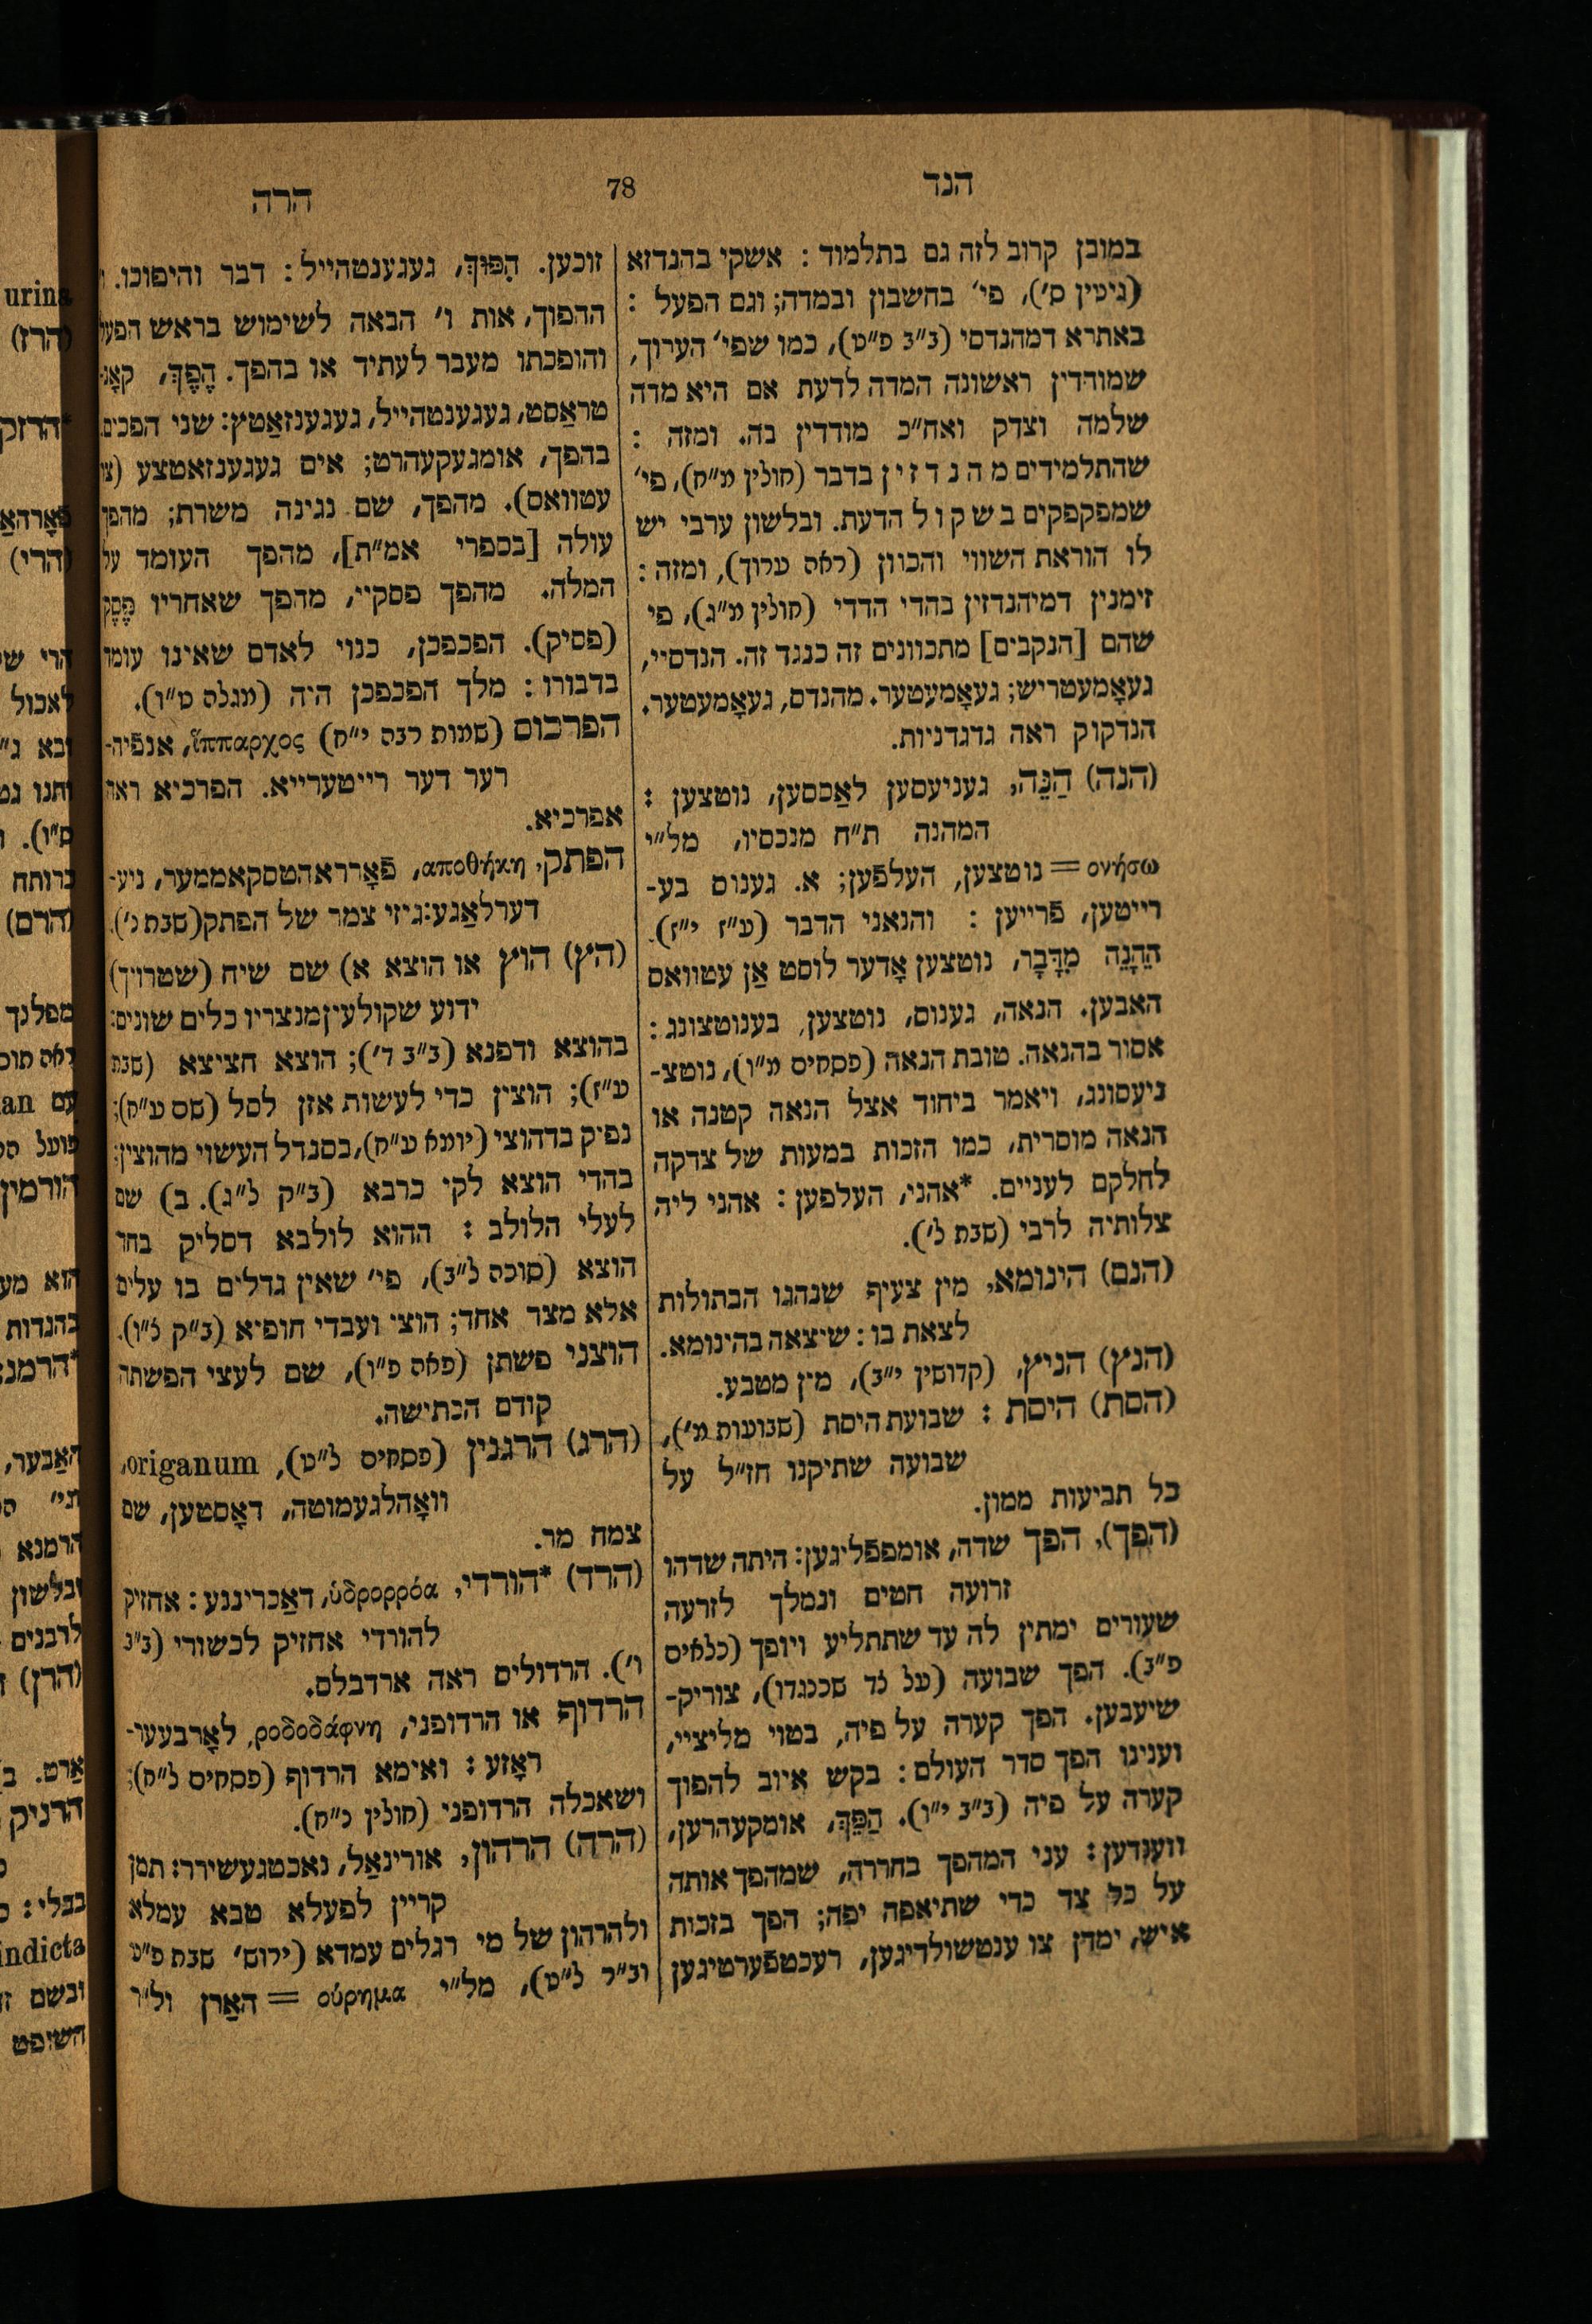 הנד
78
הרה
במובן קרוב לזה גם בתלמוד : אשקי בהנדזא
(גיטין ס׳), פי׳ בחשבון ובמדה; וגם הפעל :
באתרא דמהנדסי (ב״ב פ״ט), כמו שפי׳ הערוך,
שמודדין ראשונה המדה לדעת אם היא מדה
שלמה וצדק ואח״כ מודדין בה. ומזה :
שהתלמידים מ ה נ ד ז י ן בדבר (חולין מ״ח), פי׳
שמפקפקים ב ש ק ו ל הדעת. ובלשון ערבי יש
לו הוראת השווי והכוון (ראה ערוך), ומזה :
זימנין דמיהנדזין בהדי הדדי (חולין מ״ג), פי
שהם [הנקבים] מתכוונים זה כנגד זה. הנדסיי,
געאָמעטריש; געאָמעטער. מהנדס, געאָמעטער.
הנדקוק ראה גדגדניות.
(הנה) הַנֵּה, געניעסען לאַססען, נוטצען :
המהנה ת״ח מנכסיו, מל״י
ονήσω = נוטצען, העלפֿען; א. גענוס בע-
רייטען, פֿרייען : והנאני הדבר (ע״ז י״ז).
הֵהָנֵה מִדָּבָר, נוטצען אָדער לוסט אַן עטוואס
האבען. הנאה, גענוס, נוטצען, בענוטצונג :
אסור בהנאה. טובת הנאה (פסחים מ״ו), נוטצ-
ניעסונג, ויאמר ביחוד אצל הנאה קטנה או
הנאה מוסרית, כמו הזכות במעות של צדקה
לחלקם לעניים. *אהני, העלפען : אהני ליה
צלותיה לרבי (שבת ל׳).
(הנם) הינומא, מין צעיף שנהגו הבתולות
לצאת בו : שיצאה בהינומא.
(הנץ) הניץ, (קדושין י״ב), מין מטבע.
(הסת) היסת : שבועת היסת (שבועות מ׳),
שבועה שתיקנו חז״ל על
כל תביעות ממון.
(הפך), הפך שדה, אומפפֿליגען : היתה שדהו
זרועה חטים ונמלך לזרעה
שעורים ימתין לה עד שתתליע ויופך (כלאים
פ״ב). הפך שבועה (על לד שכנגדו), צוריק-
שיעבען. הפך קערה על פיה, בטוי מליציי,
וענינו הפך סדר העולם : בקש איוב להפוך
קערה על פיה (ב״ב י״ו). הַפֵּךְ, אומקעהרען,
ווענדען : עני המהפך בחררה, שמהפך אותה
על כל צד כדי שתיאפה יפה; הפך בזכות
איש, ימדן צו ענטשולדיגען, רעכטפֿערטיגען
זוכען. הִפּוּךְ, געגענטהייל : דבר והיפוכו. ו׳
ההפוך, אות ו׳ הבאה לשימוש בראש הפעל
והופכתו מעבר לעתיד או בהפך. הֶפֶךְ, קאָנ-
טראַסט, געגענטהייל, געגענזאַטץ : שני הפכים.
בהפך, אומגעקעהרט; אים געגענזאטצע (צו
עטוואס). מהפך, שם נגינה משרת; מהפך
עולה [בספרי אמ״ת], מהפך העומד על
המלה. מהפך פסקיי, מהפך שאחריו פָּסֵק
(פסיק). הפכפכן, כנוי לאדם שאינו עומד
בדבורו : מלך הפכפכן היה (מגלה ט״ו).
הפרכוס (שמות רבה י״ח) ἵππαρχος, אנפֿיה-
רער דער רייטערייא. הפרכיא ראה
אפרכיא.
הפתק, αποθήκη, פֿאָרראהטסקאממער, ניע-
דערלאַגע : גיזי צמר של הפתק (שבת כ׳).
(הץ) הוץ או הוצא א) שם שיח (שטרויך)
ידוע שקולעין מנצריו כלים שונים :
בהוצא ודפנא (ב״ב ד׳); הוצא חציצא (שבת
ע״ז); הוצין כדי לעשות אזן לסל (שם ע״ח);
נפיק בדהוצי (יומא ע״ח), בסנדל העשוי מהוצין;
בהדי הוצא לקי כרבא (ב״ק ל״ג). ב) שם
לעלי הלולב : ההוא לולבא דסליק בחד
הוצא (סוכה ל״ב), פי׳ שאין גדלים בו עלים
אלא מצד אחד; הוצי ועבדי חופיא (ב״ק ל״ו).
הוצני פשתן (פאה פ״ו), שם לעצי הפשתה
קודם הכתישה.
(הרג) הרגנין (פסחים ל״ט), origanum,
וואָהלגעמוטה, דאָסטען, שם
צמח מר.
(הרד) *הורדי, ὑδρορρόα, דאַכרינגע : אחזיק
להורדי אחזיק לכשורי (ב״ב
ו׳). הרדולים ראה ארדבלם.
הרדוף או הרדופני, ροδοδάφνη, לאָרבעער-
ראָזע : ואימא הרדוף (פסחים ל״ח);
ושאכלה הרדופני (חולין כ״ח).
(הרה) הרהון, אורינאַל, נאכטגעשירר : תמן
קריין לפעלא טבא עמלא
ולהרהון של מי רגלים עמדא (ירוש׳ שבת פ״ט
וב״ר ל״ט), מל״י ούρημα = האַרן ול״ר